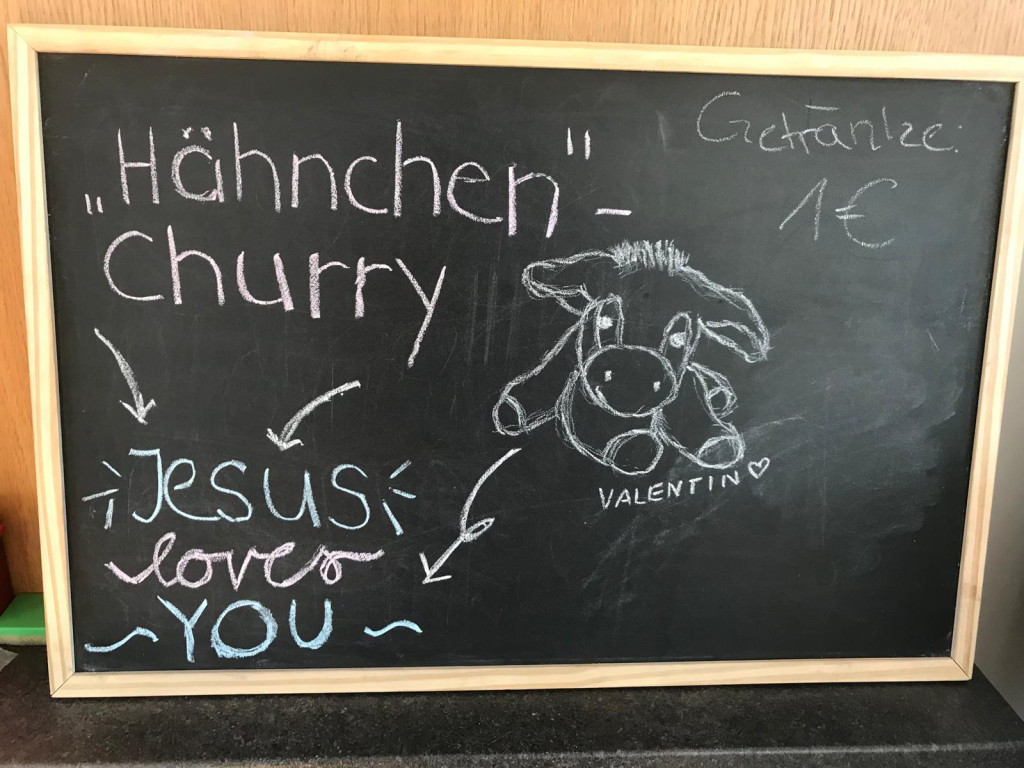 „Hähnchen"-
Churry
Getränke:
1€
VALENTIN♡
Jesus
loves
YOU